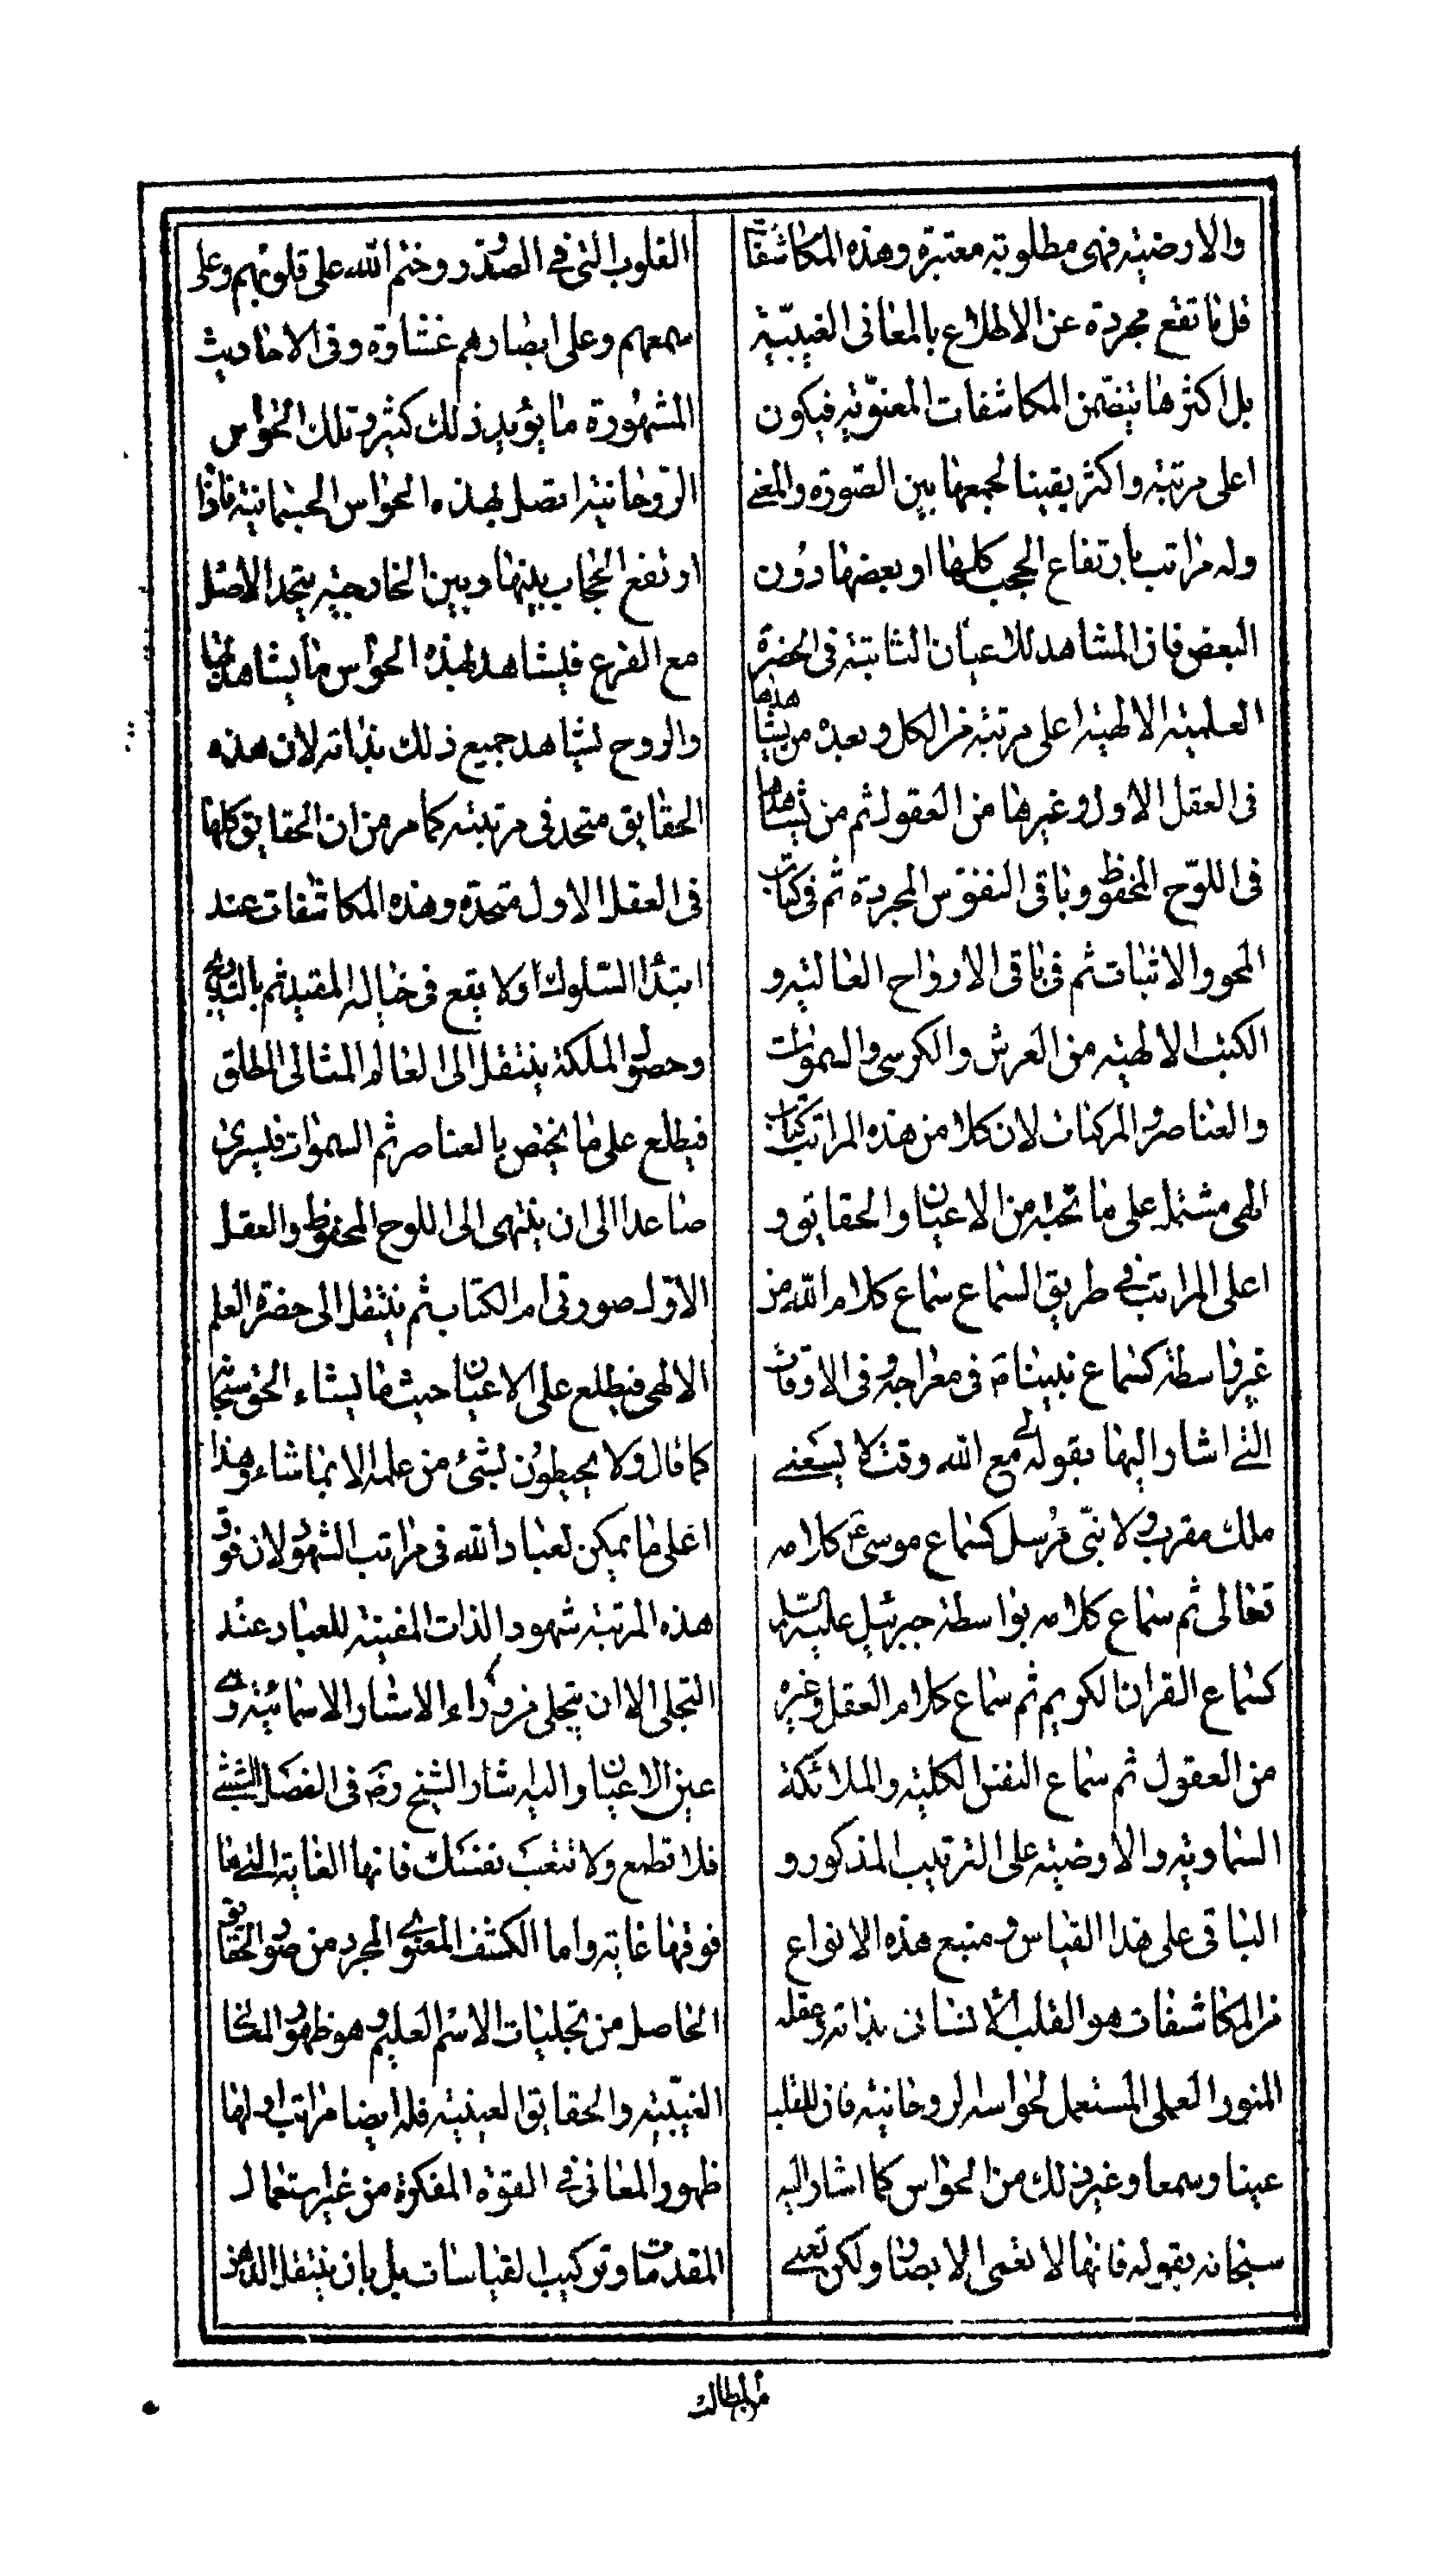 والارضية فهى مطلوبة معتبرة وهذه المكاشفات
قل ما تقع مجردة عن الاطلاع بالمعانى الغيبية
بل اكثرها يتضمن المكاشفات المعنوية فيكون
اعلى مرتبة واكثر يقينا لجمعها بين الصورة والمعنى
وله مراتب بارتفاع الحجب كلها او بعضها دون
البعض فان المشاهد للاعيان الثابتة فى الحضرة
العلمية الالهية اعلى مرتبة من الكل وبعده من يشاهدها
فى العقل الاول وغيرها من العقول ثم من يشاهدها
فى اللوح المحفوظ وباقى النفوس المجردة ثم فى كتاب
المحو والاثبات ثم فى باقى الارواح العالية و
الكتب الالهية من العرش والكرسى والسموات
والعناصر والمركبات لان كلا من هذه المراتب كتاب
الهى مشتمل على ما تحته من الاعيان والحقايق و
اعلى المراتب فى طريق السماع سماع كلام الله من
غير واسطة كسماع نبينا ص فى معراجه وفى الاوقات
التى اشار اليها بقوله لى مع الله وقت لا يسعنى
ملك مقرب ولا نبى مرسل كسماع موسى ع كلامه
تعالى ثم سماع كلامه بواسطة جبرئيل عليه السلام
كسماع القران الكريم ثم سماع كلام العقل وغيره
من العقول ثم سماع النفس الكلية والملائكة
السماوية والارضية على الترتيب المذكور و
الباقى على هذا القياس ومنبع هذه الانواع
من المكاشفات هو القلب الانسانى بذاته وعقله
المنور العملى المستعمل لحواسه الروحانية فان للقلب
عينا وسمعا وغير ذلك من الحواس كما اشار اليه
سبحانه بقوله فانها لا تعمى الابصار ولكن تعمى
القلوب التى فى الصدور وختم الله على قلوبهم وعلى
سمعهم وعلى ابصارهم غشاوة وفى الاحاديث
المشهورة ما يؤيد ذلك كثير وتلك الحواس
الروحانية اصل لهذه الحواس الجسمانية فاذا
ارتفع الحجاب بينها وبين الخارجية يتحد الاصل
مع الفرع فيشاهد بهذه الحواس ما يشاهد بها
والروح يشاهد جميع ذلك بذاته لان هذه
الحقايق متحد فى مرتبته كما مر من ان الحقايق كلها
فى العقل الاول متحدة وهذه المكاشفات عند
ابتداء السلوك اولا يقع فى خياله المقيد ثم بالتدريج
وحصول الملكة ينتقل الى العالم المثالى المطلق
فيطلع على ما يختص بالعناصر ثم السموات فيسرى
صاعدا الى ان ينتهى الى اللوح المحفوظ والعقل
الاول صورتى ام الكتاب ثم ينتقل الى حضرة العلم
الالهى فيطلع على الاعيان حيث ما يشاء الحق سبحانه
كما قال ولا يحيطون بشئ من علمه الا بما شاء وهذا
اعلى ما يمكن لعباد الله فى مراتب الشهود لان فوق
هذه المرتبة شهود الذات المفنية للعباد عند
التجلى الا ان يتجلى من وراء الاستار الاسمائية وهى
عين الاعيان واليه شار الشيخ رضى فى الفص الشيثى
فلا تطمع ولا تتعب نفسك فانها الغاية التى ما
فوقها غاية واما الكشف المعنوى المجرد من صور الحقايق
الحاصل من تجليات الاسم العليم وهو ظهور المعانى
الغيبية والحقايق العينية فله ايضا مراتب اولها
ظهور المعانى فى القوة المفكرة من غير استعمال
المقدمات وتركيب القياسات بل بان ينتقل الذهن
من المطالب